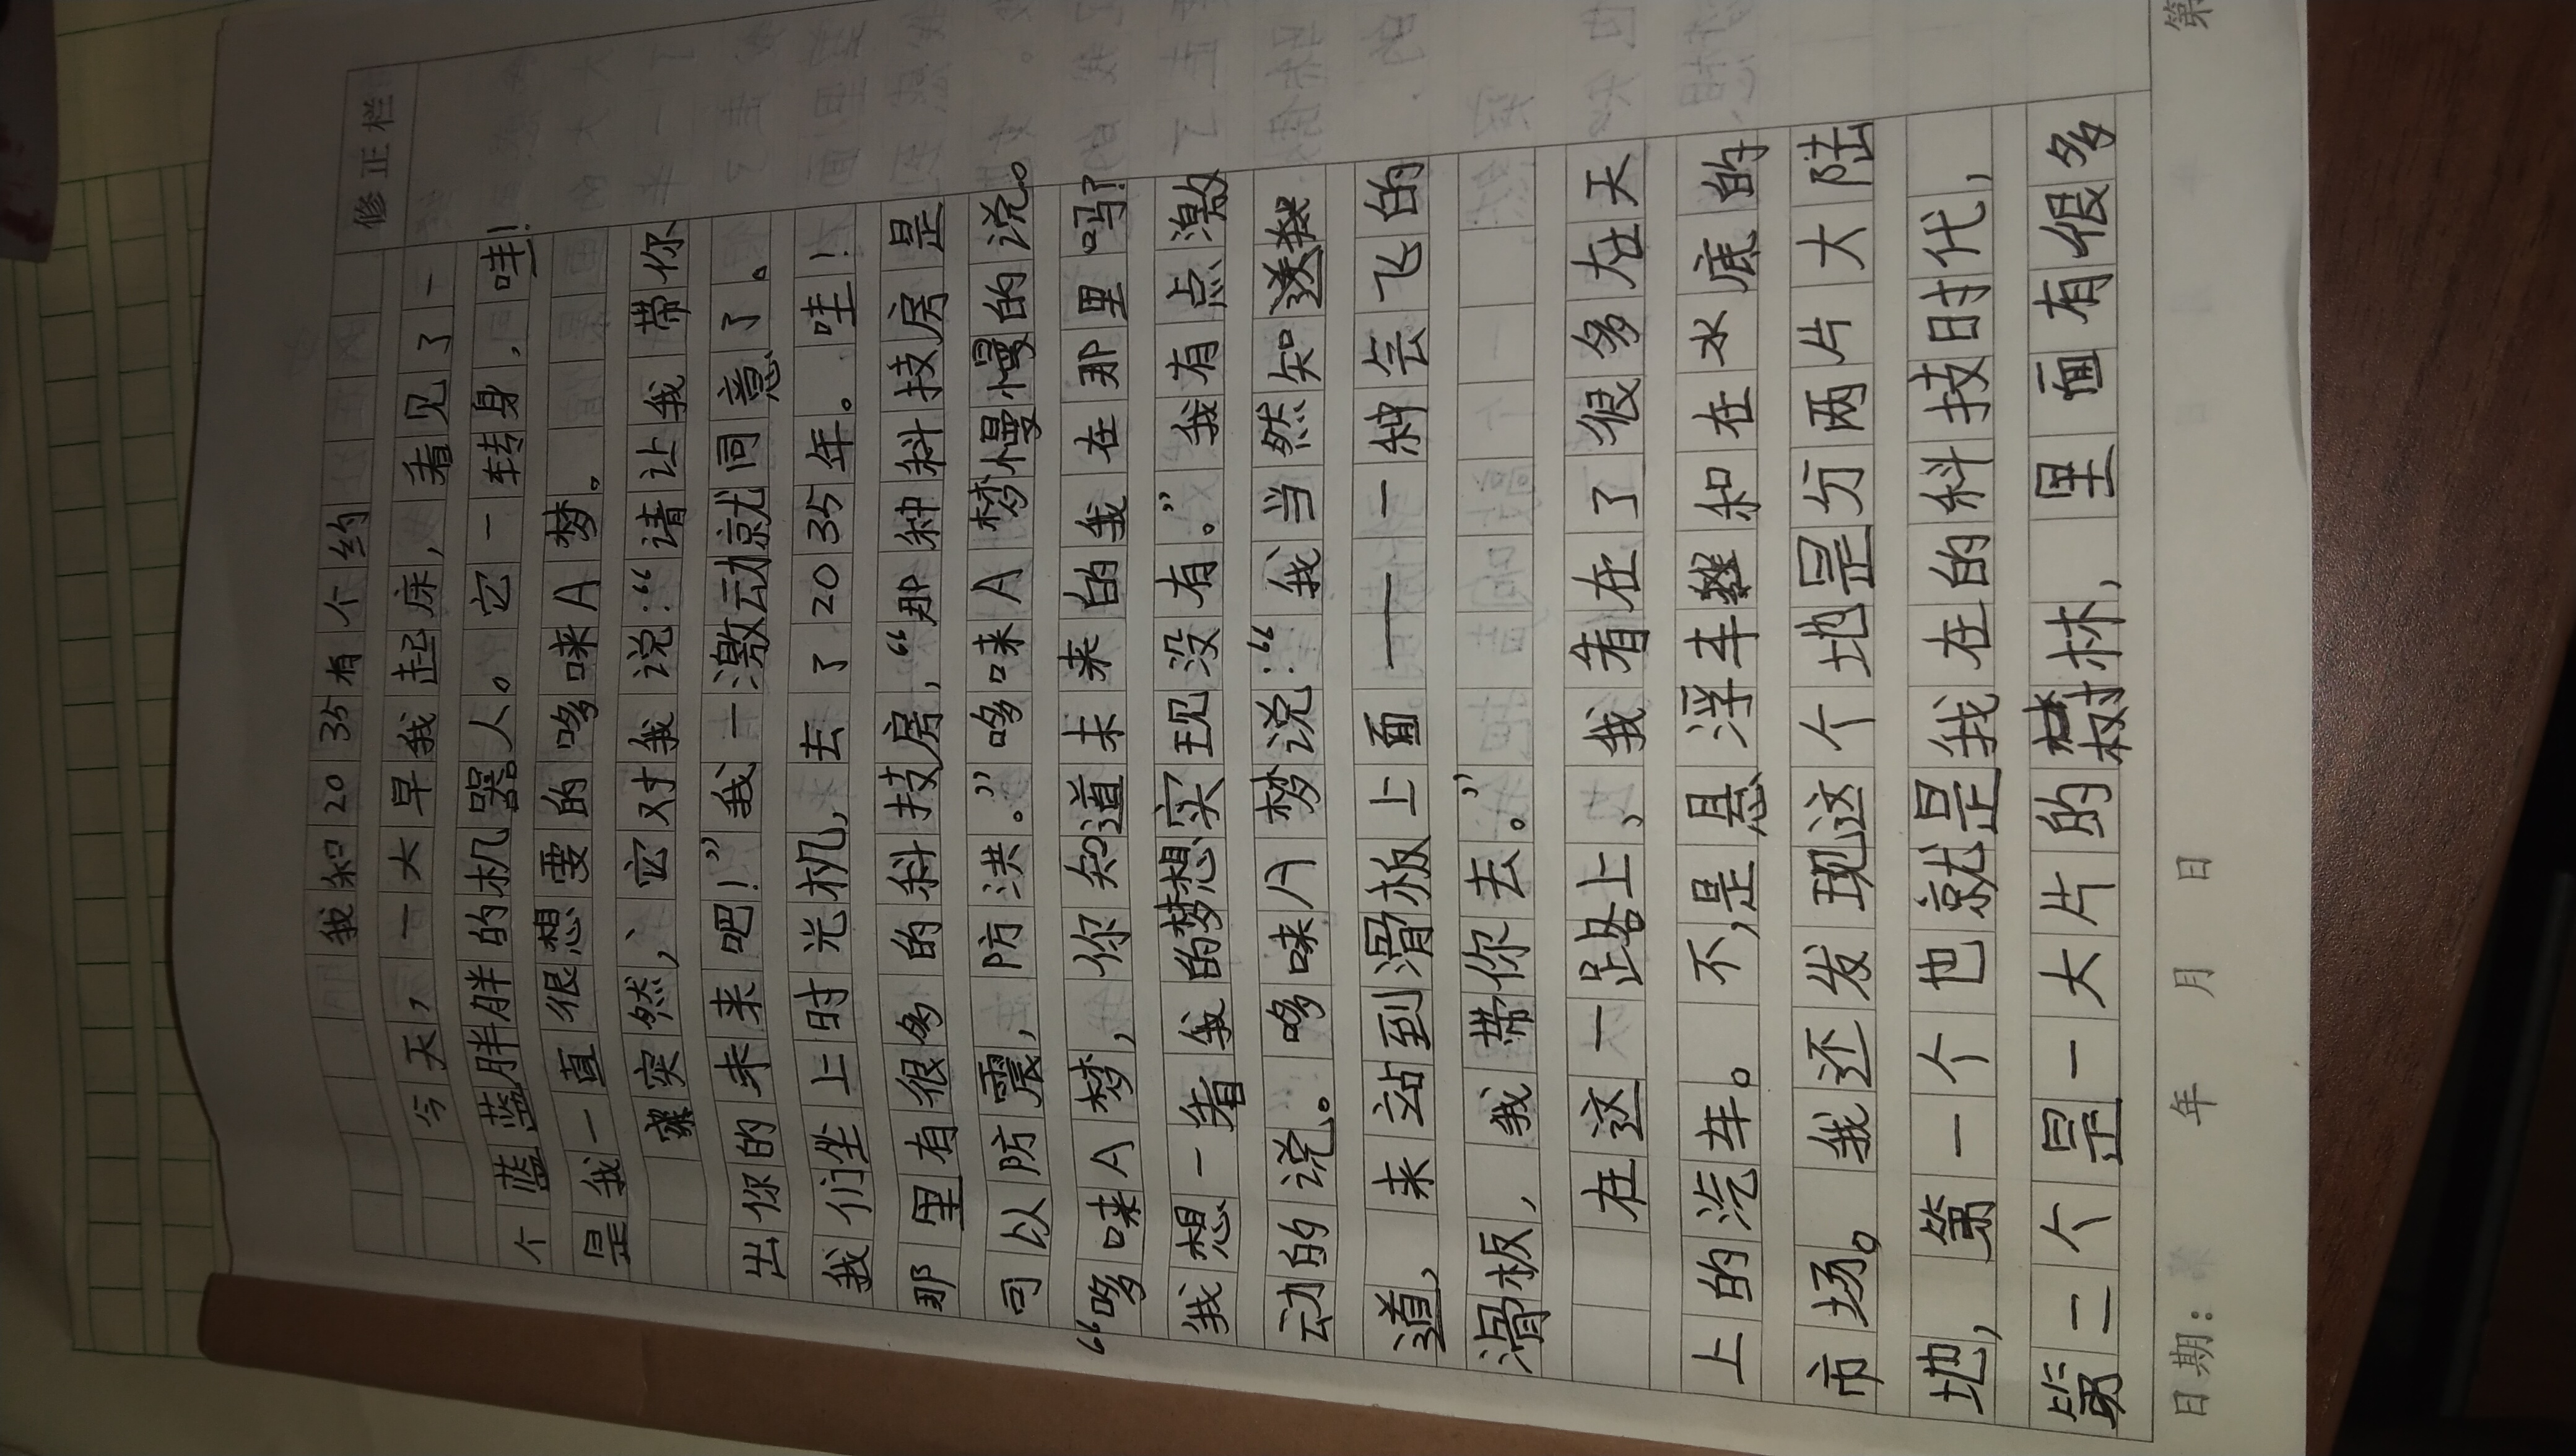 修正栏
我和2035有个约
今天，一大早我起床，看见了一
个蓝蓝胖胖的机器人。它一转身，哇！
是我一直很想要的哆唻A梦。
突然，它对我说：“请让我带你
出你的未来吧！”我一激动就同意了。
我们坐上时光机，去了2035年。哇！
那里有很多的科技房，“那种科技房是
司以防震，防洪。”哆唻A梦慢慢的说。
“哆唻A梦，你知道未来的我在那里吗？
我想一看我的梦想实现没有。”我有点激
动的说。哆唻A梦说：“我当然知
道，来站到滑板上面——一种会飞的
滑板，我带你去。”
在这一路上，我看在了很多在天
上的汽车。不，是悬浮车和在水底的
市场。我还发现这个地是分两片大陆
地，第一个也就是我在的科技时代，
第二个是一大片的树林，里面有很多
日期： 年 月 日 第